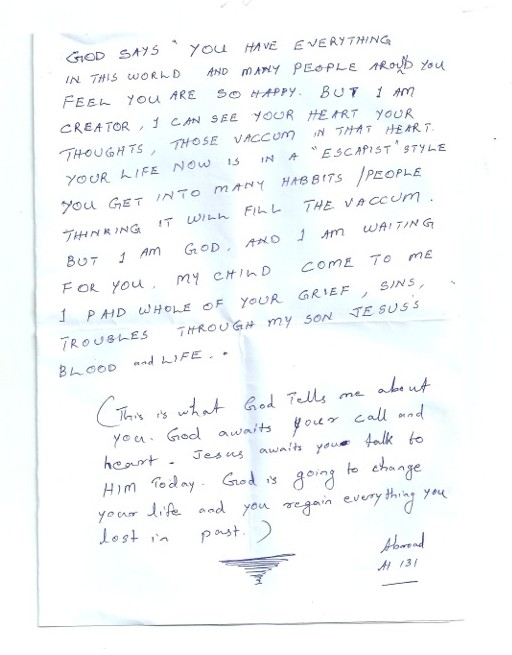 GOD SAYS " YOU HAVE EVERYTHING
IN THIS WORLD AND MANY PEOPLE AROUND YOU
FEEL YOU ARE SO HAPPY. BUT I AM
CREATOR, I CAN SEE YOUR HEART YOUR
THOUGHTS, THOSE VACCUM IN THAT HEART.
YOUR LIFE NOW IS IN A "ESCAPIST" STYLE
YOU GET INTO MANY HABBITS /PEOPLE
THINKING IT WILL FILL THE VACCUM.
BUT I AM GOD. AND I AM WAITING
FOR YOU. MY CHILD COME TO ME
I PAID WHOLE OF YOUR GRIEF, SINS,
TROUBLES THROUGH MY SON JESUS'S
BLOOD and LIFE..
(This is what God Tells me about
you. God awaits your call and
heart. Jesus awaits your talk to
HIM Today. God is going to change
your life and you regain everything you
lost in past.)
A1 131